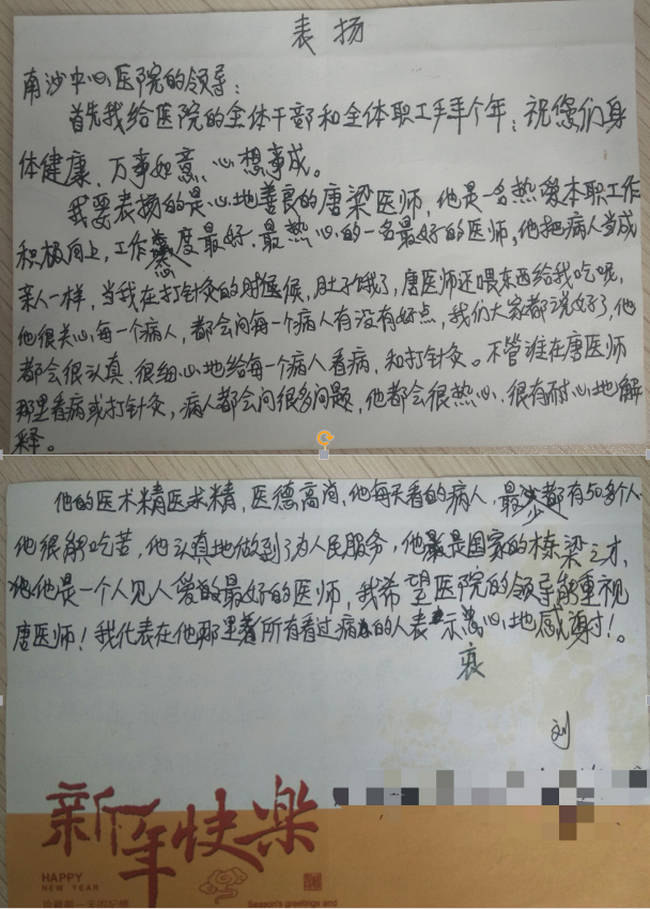 表扬
南沙中心医院的领导:
首先我给医院的全体干部和全体职工拜个年;祝您们身
体健康、万事如意、心想事成。
我要表扬的是心地善良的唐梁医师,他是一名热爱本职工作
积极向上,工作态度最好、最热心的一名最好的医师,他把病人当成
亲人一样,当我在打针灸的时候,肚子饿了,唐医师还喂东西给我吃呢,
他很关心每一个病人,都会问每一个病人有没有好点,我们大家都说好了,他
都会很认真、很细心地给每一个病人看病,和打针灸。不管谁在唐医师
那里看病或打针灸,病人都会问很多问题,他都会很热心、很有耐心地解
释。
他的医术精医求精,医德高尚,他每天看的病人,最少都有50多个人
他很能吃苦,他认真地做到了为人民服务,他是国家的栋梁之才,
他是一个人见人爱的最好的医师,我希望医院的领导能重视
唐医师!我代表在他那里所有看过病的人表示衷心地感谢!。
刘
新年快樂
HAPPY
NEW YEAR
Season's greetings and